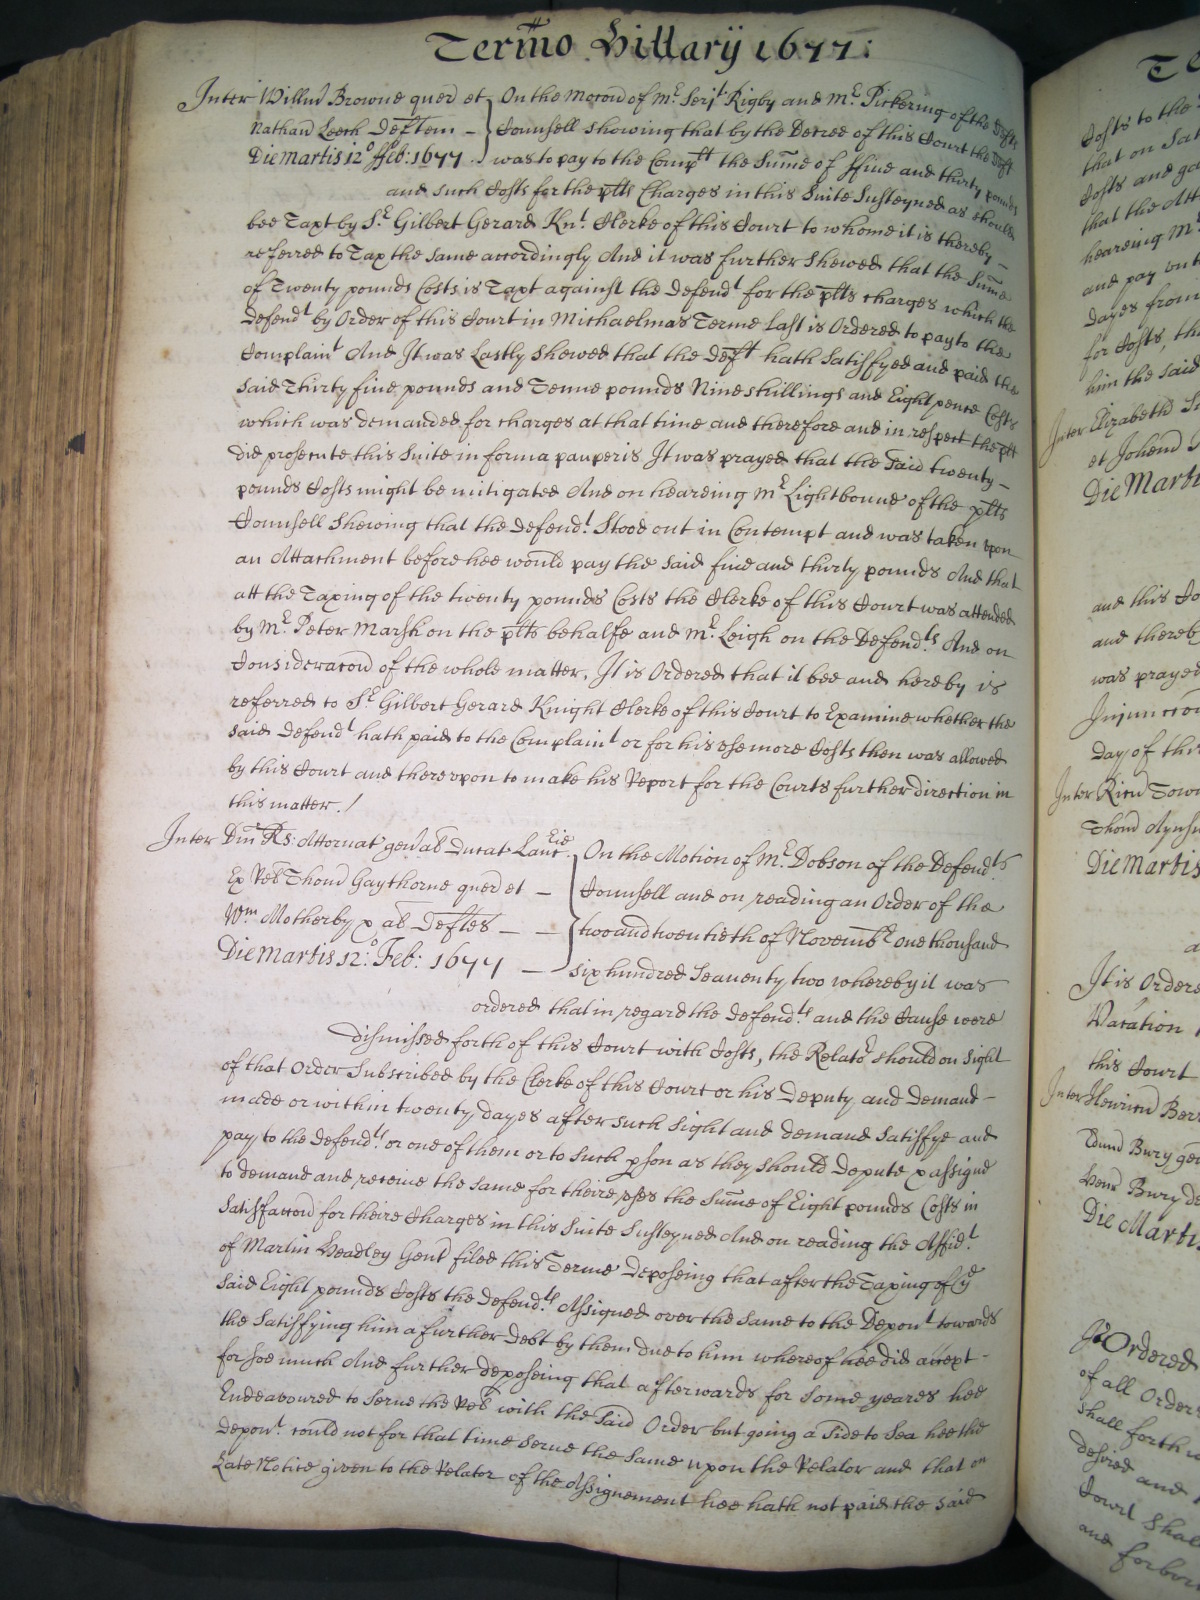 Termo Hillarij 1677:
Inter Willm Browne quer et On the Mocon of Mr Serjt Rigby and Mr Pickering of the Defts
Nathan Leech Deftem Counsell shewing that by the Decree of this Court the Deft
Die Martis 12o ffeb: 1677 was to pay to the Complt the Summe of ffive and thirty pounds
and such Costs for the plts Charges in this Suite Susteyned as should
bee Taxt by Sr Gilbert Gerard Knt. Clerke of this Court to whome it is thereby –
referred to Tax the same accordingly And it was further Shewed that the Summe
of Twenty pounds Costs is Taxt against the Defendt for the plts charges which the
Defendt by Order of this Court in Michaelmas Terme last is Ordered to pay to the
Complaint And It was Lastly shewed that the Deft hath Satisfyed and paid the
said Thirty five pounds and Tenne pounds Nine shillings and Eight pence Costs
which was demanded for charges at that time and therefore and in respect the plt
did prosecute this Suite in forma pauperis It was prayed that the said twenty –
pounds Costs might be mitigated And on heareing Mr Lightbourne of the plts
Counsell Shewing that the Defendt. Stood out in Contempt and was taken upon
an Attachment before hee would pay the said five and thirty pounds And that
att the Taxing of the twenty pounds Costs the Clerke of this Court was attended
by Mr. Peter Marsh on the plts behalfe and Mr. Leigh on the Defendts. And on
Consideracon of the whole matter, It is Ordered that it bee and hereby is
referred to Sr Gilbert Gerard Knight Clerke of this Court to Examine whether the
said Defendt hath paid to the Complaint or for his use more Costs then was allowed
by this Court and thereupon to make his Report for the Courts further direction in
this matter./
Inter Dm Rs. Attornat genal Ducat Lanc Eio On the Motion of Mr Dobson of the Defendts
Ex Rel Thom Gaythorne quer et – Counsell and on reading an Order of the
Wm Motherby & al Deftes – – two and twentieth of Novembr one thousand
Die Martis 12o: Feb: 1677 – six hundred Seaventy two whereby it was
ordered that in regard the Defendts. and the Cause were
dismissed forth of this Court with Costs, the Relator should on sight
of that Order Subscribed by the Clerke of this Court or his Deputy and demand –
made or within twenty dayes after such sight and demand satisfye and
pay to the Defendts. or one of them or to such pson as they should depute & assigne
to demand and receive the same for theire uses the Summe of Eight pounds Costs in
Satisfaccon for theire Charges in this Suite Susteyned And on reading the Affidt.
of Martin Headley Gent filed this Terme deposeing that after the Taxing of ye
said Eight pounds Costs the Defendts. Assigned over the same to the Depont towards
the Satisfying him a further debt by them due to him whereof hee did accept –
for soe much And further deposeing that afterwards for some yeares hee
Endeavoured to serve the Rel with the said Order but going a side to Sea hee the
Depont. could not for that time serve the same upon the Relator and that on
Late Notice given to the Relator of the Assignement hee hath not paid the said
Costs to the
that on Sat
Costs and
that the Att
heareing Mr
and pay
dayes from
for Costs, th
him the said
Inter Elizabeth
et Johem
Die Marti
and this Co
and thereby
was prayed
Injunccon
day of this
Inter Ricu Town
Die Martis
It is Ordere
Vacation
this Court
Inter Henricu
Edmd Bury
Henr Bury
Die Marti
It Ordered
of all Order
shall forth
desired and
Court shal
and forbor